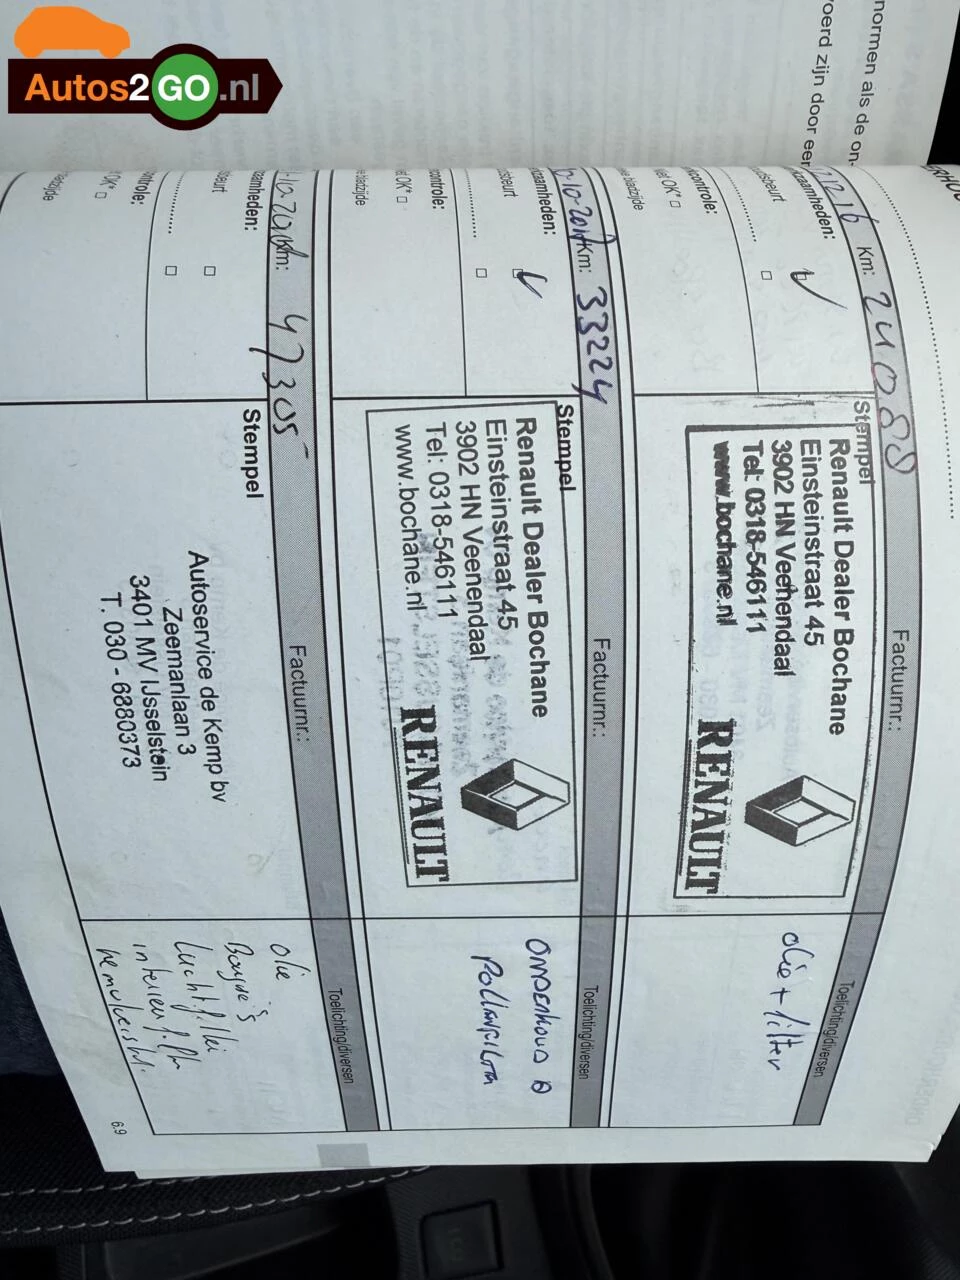 Autos2GO.nl
normen als de on-
oerd zijn door een
12 16 Km: 24088
Factuurnr.:
Toelichting/diversen
zaamheden:
sbeurt
controle:
Stempel
Renault Dealer Bochane
Einsteinstraat 45
3902 HN Veenendaal
Tel: 0318-546111
www.bochane.nl
RENAULT
olie + filter
-10-2017 Km: 33224
Factuurnr.:
Toelichting/diversen
zaamheden:
sbeurt
controle:
et OK*
e bladzijde
Stempel
Renault Dealer Bochane
Einsteinstraat 45
3902 HN Veenendaal
Tel: 0318-546111
www.bochane.nl
RENAULT
ONDERHOUD
POLLENFILTER
Km: 47305
Factuurnr.:
Toelichting/diversen
zaamheden:
beurt
ntrole:
OK*
Stempel
Autoservice de Kemp bv
Zeemanlaan 3
3401 MV IJsselstein
T. 030 - 6880373
olie
Bougie's
Luchtfilter
interieurfilter
remvloeistof
6.9